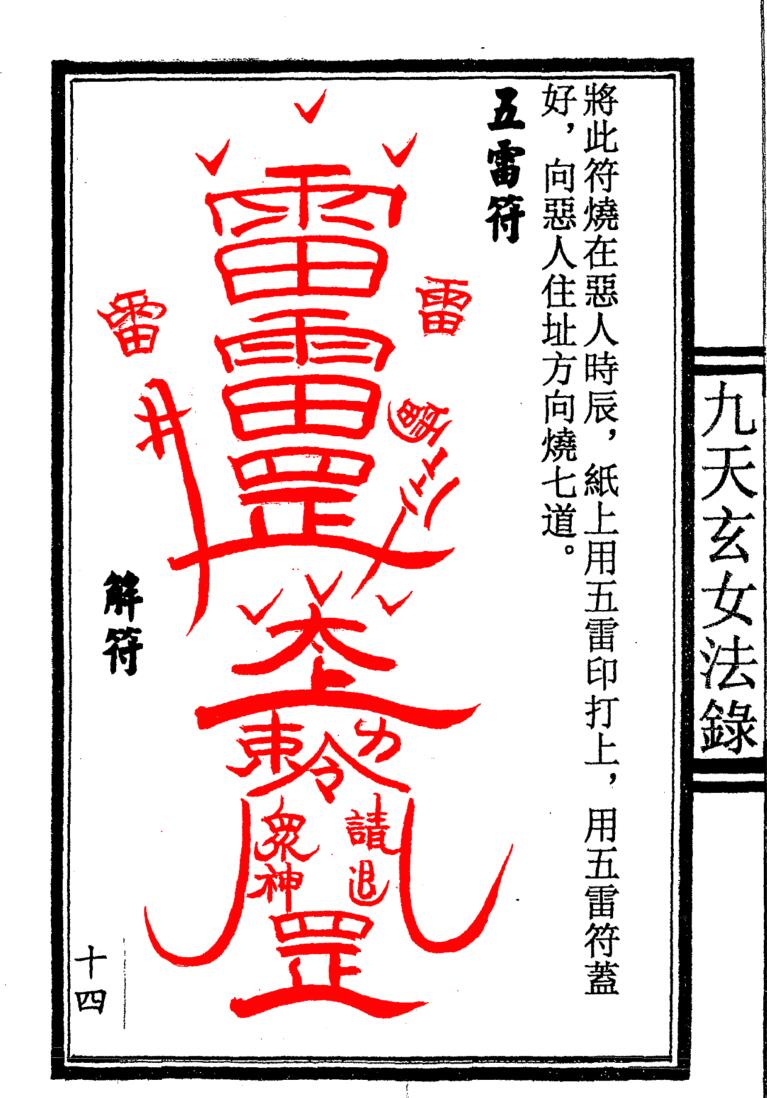 九天玄女法錄
將此符燒在惡人時辰，紙上用五雷印打上，用五雷符蓋
好，向惡人住址方向燒七道。
五雷符
雷
雷
雷
雷
罡
井
太上
敕令
請退
眾神
罡
解符
十四